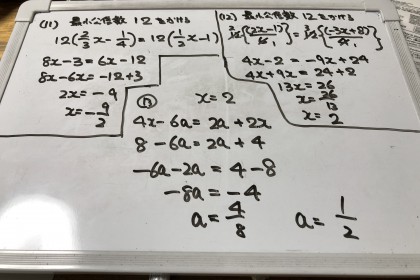 (11) 最小公倍数 12をかける
12(2/3x - 1/4) = 12(1/2x - 1)
8x - 3 = 6x - 12
8x - 6x = -12 + 3
2x = -9
x = -9/2
(12) 最小公倍数 12をかける
4x - 2 = -9x + 24
4x + 9x = 24 + 2
13x = 26
x = 26/13
x = 2
x = 2
4x - 6a = 2a + 2x
8 - 6a = 2a + 4
-6a - 2a = 4 - 8
-8a = -4
a = 4/8
a = 1/2